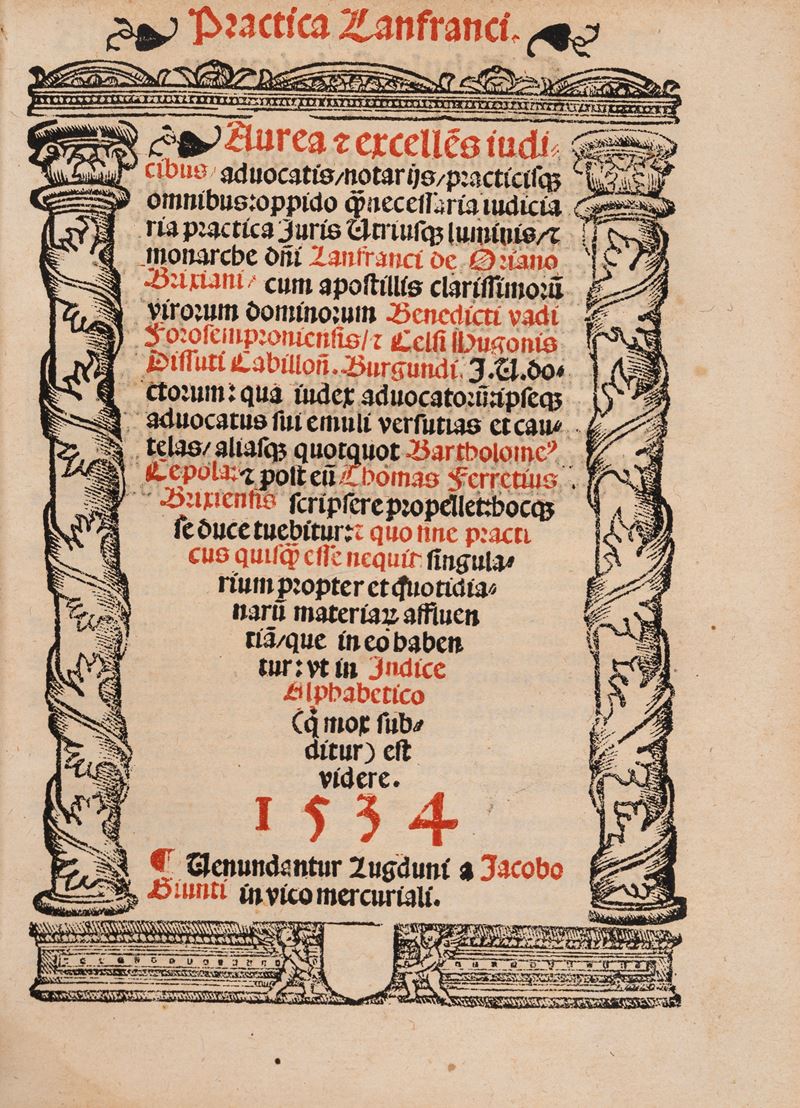 Practica Lanfranci.
Aurea ⁊ excellẽs iudi/
cibus/ aduocatis/notarijs/practicisqꝫ
omnibus:oppido q̃ȝnecessaria iudicia
ria practica Juris Utriusqꝫ luminis/⁊
monarche dñi Lanfranci de Oriano
Brixiani/ cum apostillis clarissimorũ
virorum dominorum Benedicti vadi
Forosemproniensis/⁊ Celsi Hugonis
Dissuti Cabilloñ. Burgundi. J.U.do-
ctorum: qua iudex aduocatorũ:ipseqꝫ
aduocatus sui emuli versutias et cau/
telas/ aliasqꝫ quotquot Bartholomeꝰ
Cepola: ⁊ post eũ Thomas Ferretius
Brixiensis scripsere propellet:hocqꝫ
se duce tuebitur:⁊ quo sine practi
cus quisq̃ȝ esse nequit singula/
rium propter et quotidia/
narũ materiaꝝ affluen
tiã/que in eo haben
tur: vt in Indice
Alphabetico
(q̃ mox sub/
ditur) est
videre.
1534
¶ Uenundantur Lugduni a Jacobo
Giunti in vico mercuriali.